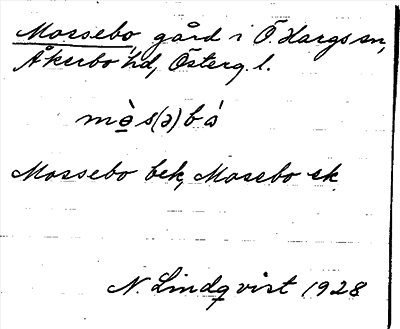 Mossebo, gård i Ö. Hargs sn,
Åkerbo hd, Österg. l.
mò̲s(ə)bó
Mossebo bek, Mosebo sk.
N. Lindqvist 1928